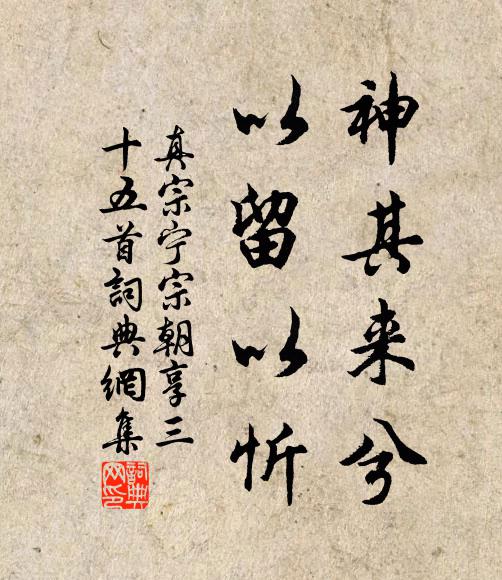 神其来兮
以留以忻
真宗宁宗朝享三
十五首詞典網集
詞典
网印